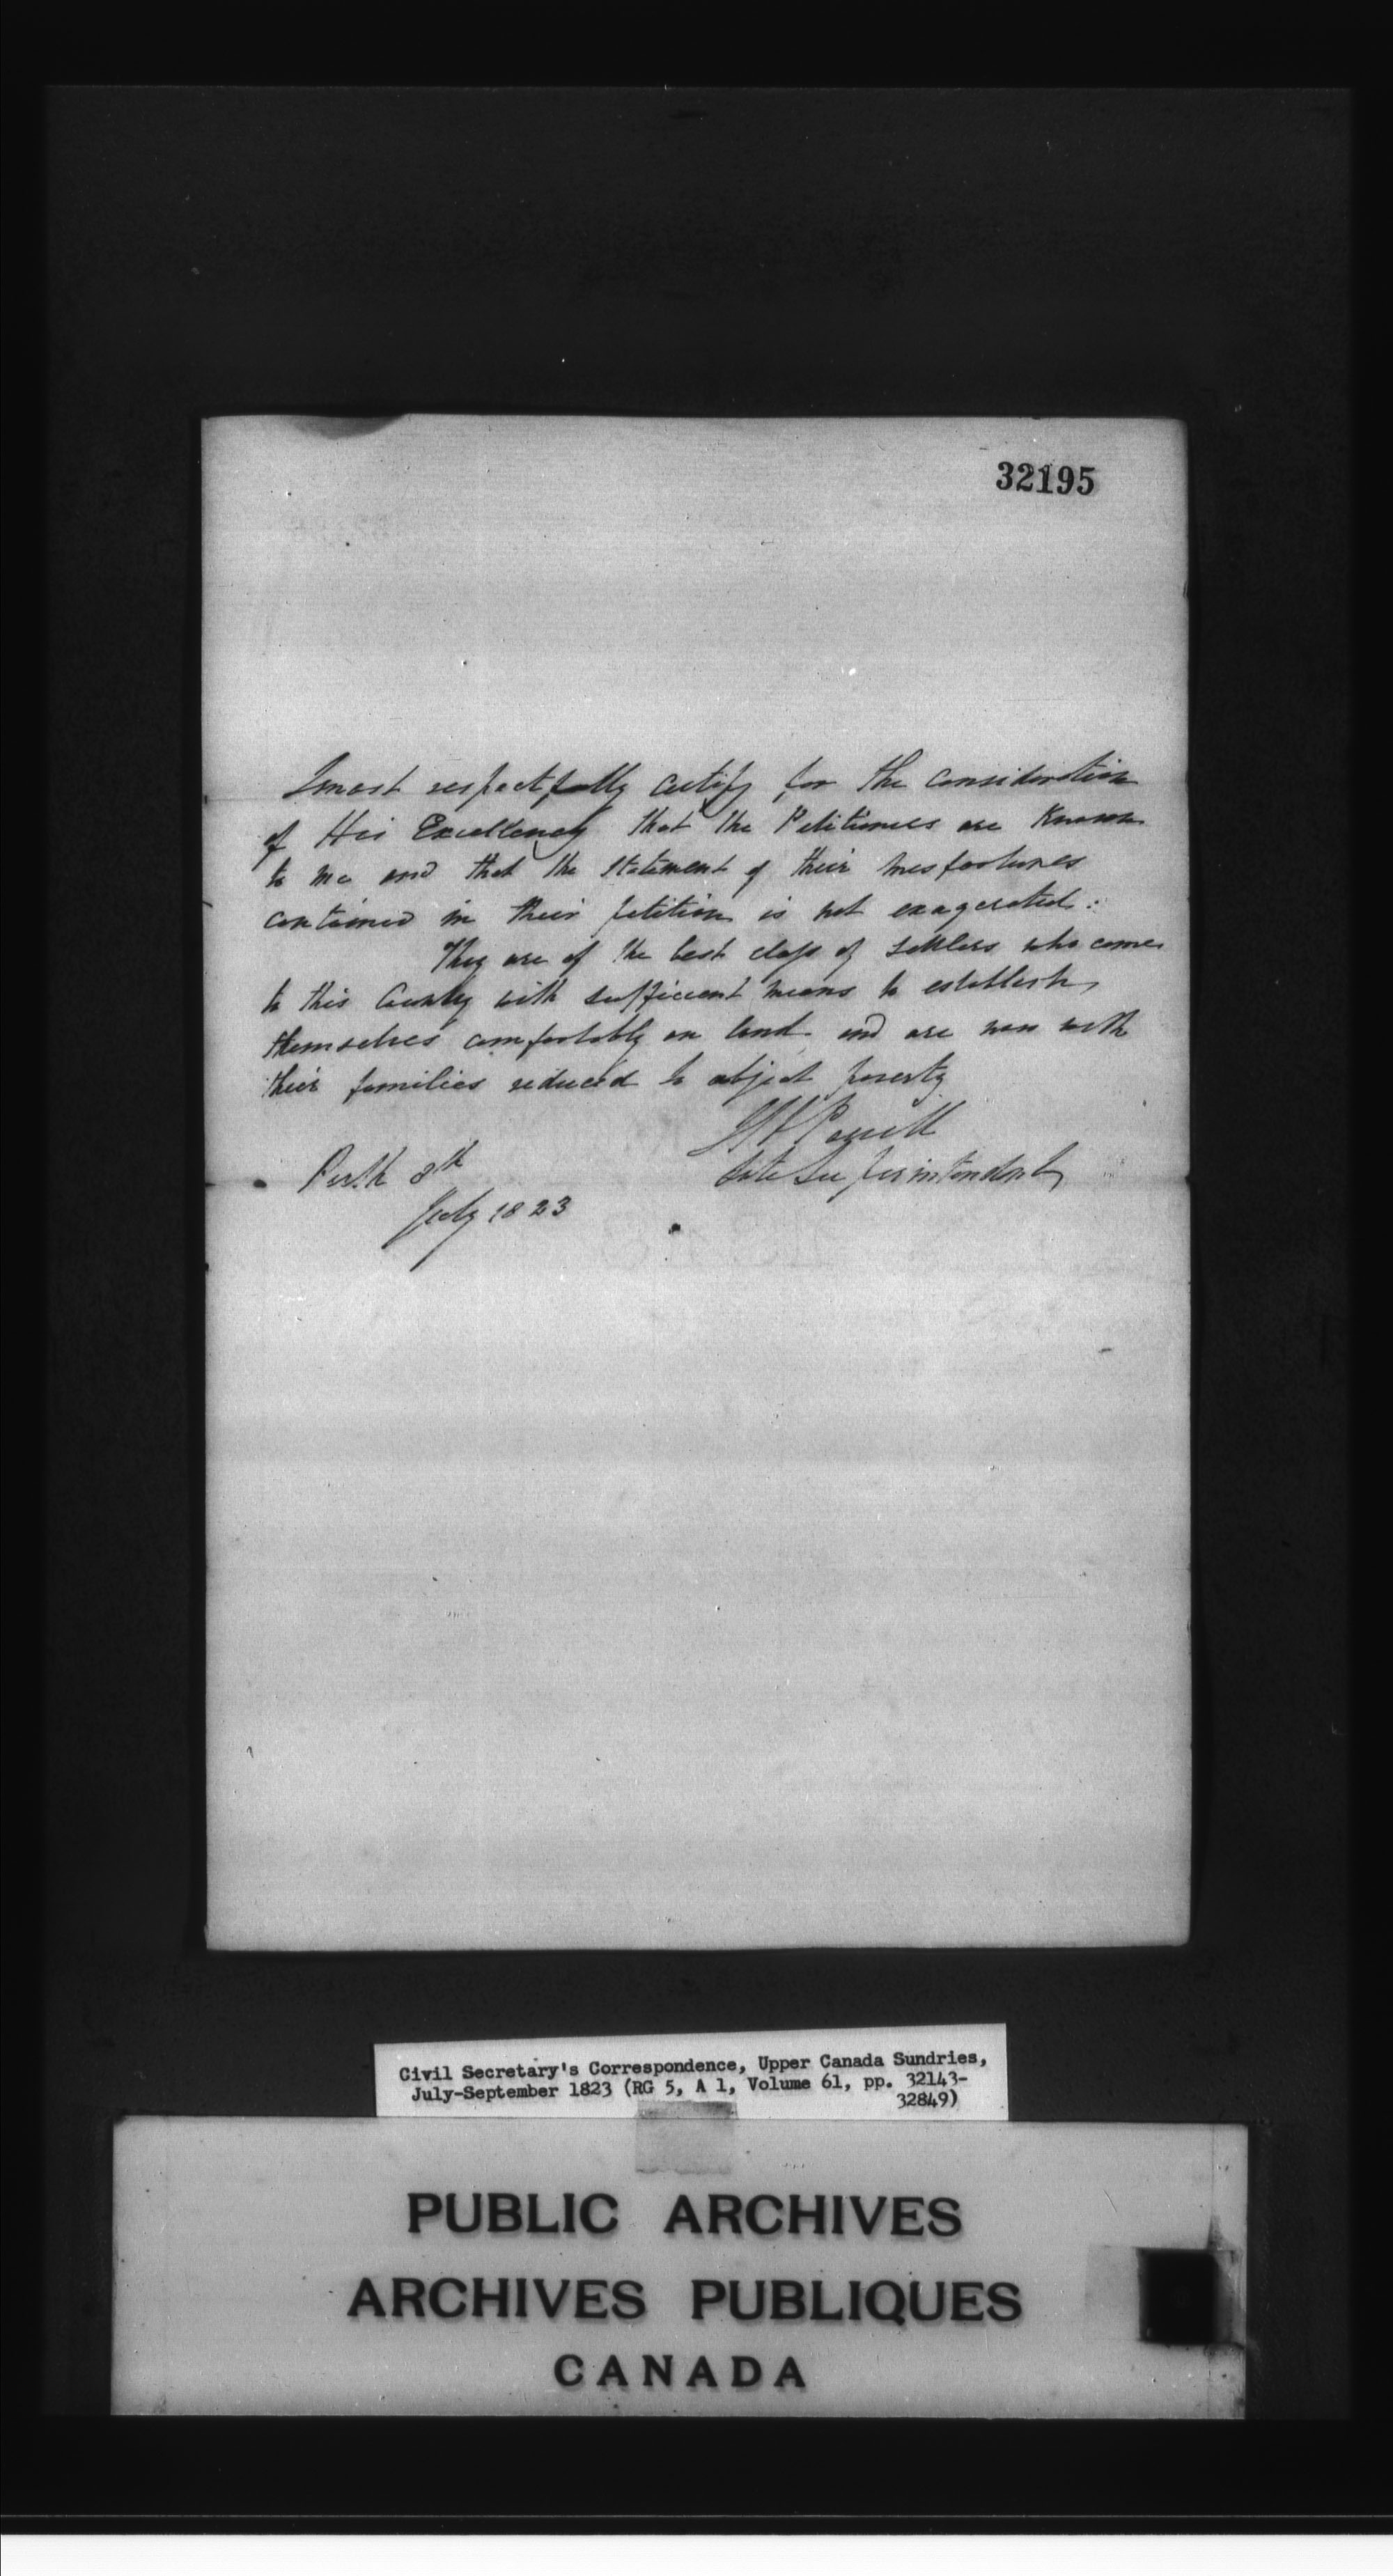 32195
I most respectfully certify for the consideration
of His Excellency that the Petitioners are Known
to me and that the statement of their misfortunes
contained in their petition is not exagerated.
They are of the best class of settlers who come
to this Country with sufficient means to establish
themselves comfortably on land and are now with
their families reduced to abject poverty
Powell
Late Superintendent
Perth 8th
July 1823
Civil Secretary's Correspondence, Upper Canada Sundries,
July-September 1823 (RG 5, A 1, Volume 61, pp. 32143-
32849)
PUBLIC ARCHIVES
ARCHIVES PUBLIQUES
CANADA